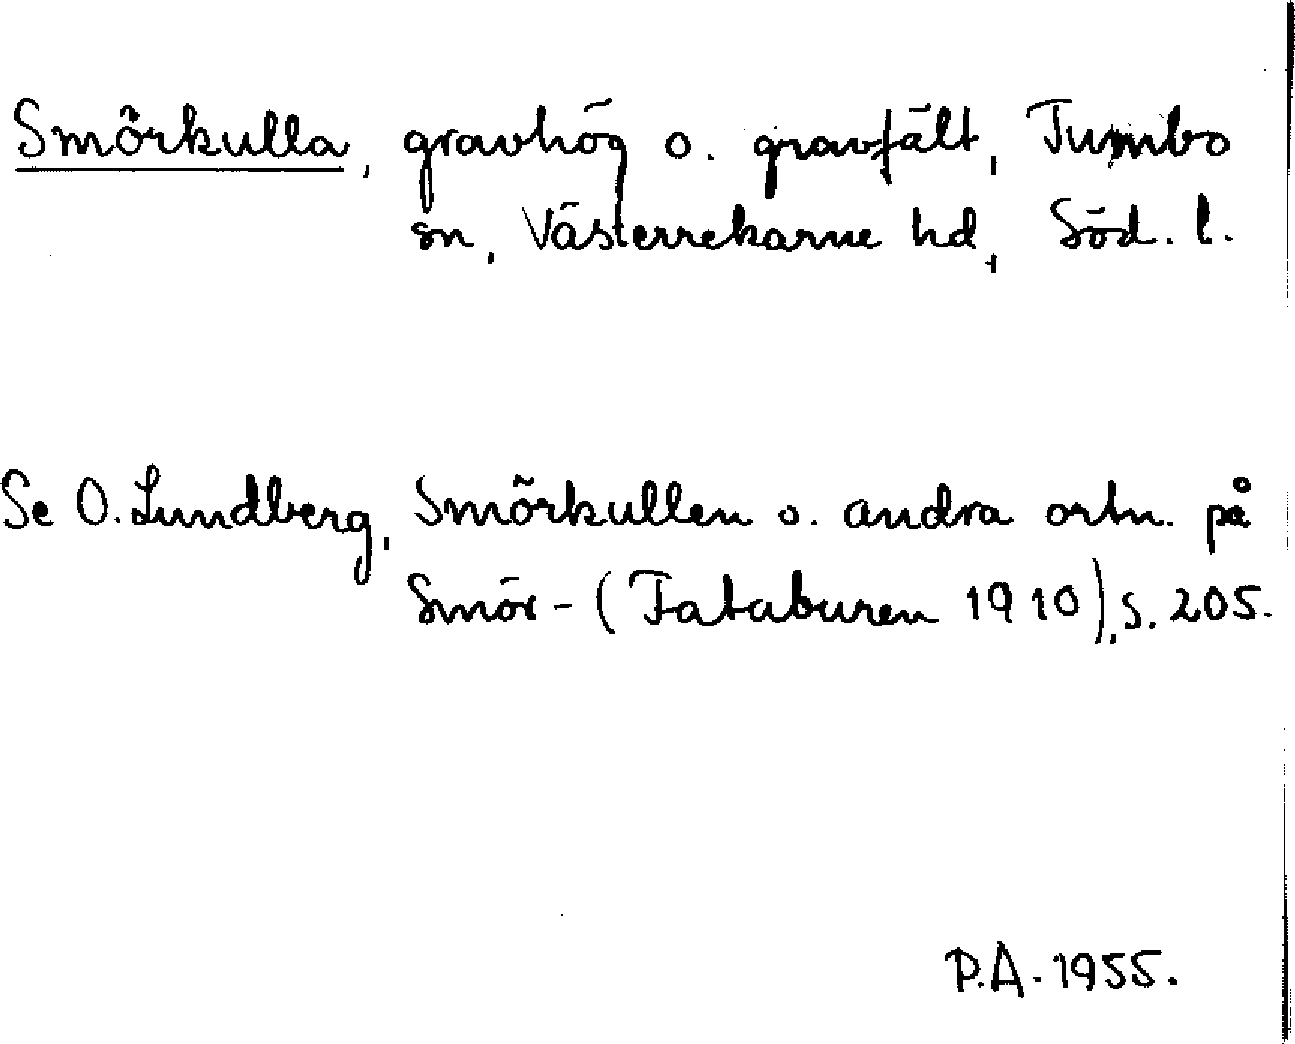 Smörkulla, gravhög o. gravfält, Tumbo
sn, Västerrekarne hd, Söd. l.
Se O. Lundberg, Smörkullen o. andra ortn. på
Smör- (Fataburen 1910), s. 205.
P.A. 1955.